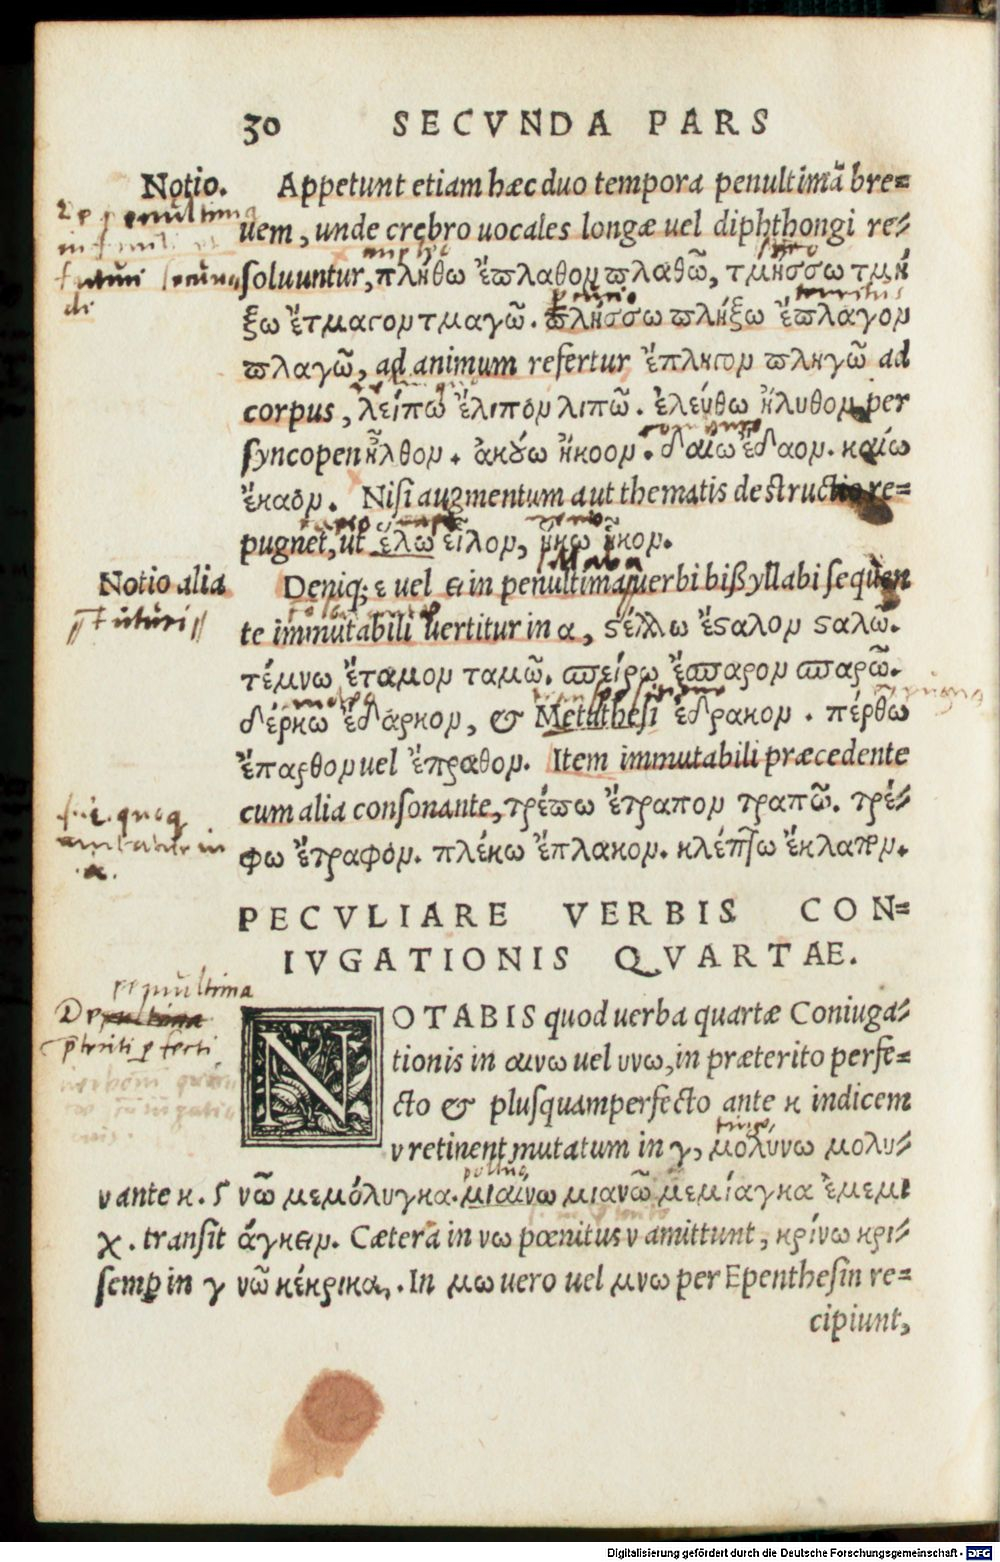 30 SECVNDA PARS
Notio. Appetunt etiam hæc duo tempora penultimã bre=
uem, unde crebro uocales longæ uel diphthongi re=
soluuntur, πλήθω ἔϖλαθομ ϖλαθῶ, τμήσσω τμή
ξω ἔτμαγομ τμαγῶ. ϖλήσσω ϖλήξω ἔϖλαγομ
ϖλαγῶ, ad animum refertur ἔπληγομ ϖληγῶ ad
corpus, λείπω ἔλιπομ λιπῶ. ἐλεύθω ἤλυθομ per
syncopen ἦλθομ. ἀκȣ́ω ἤκοομ. δαίω ἔδαομ. καίω
ἔκαομ. Nisi augmentum aut thematis destructio re=
pugnet, ut ἕλω εἷλομ, ἥκω ἧκομ.
Notio alia Deniq; ε uel ει in penultima uerbi bißyllabi sequen
Futuri
te immutabili uertitur in α, ϛέλλω ἔϛαλομ ϛαλῶ.
τέμνω ἔταμομ ταμῶ. σϖείρω ἔσϖαρομ σϖαρῶ.
δέρκω ἔδαρκομ, & Metathesi ἔδρακομ. πέρθω
ἔπαρθομ uel ἔπραθομ. Item immutabili præcedente
cum alia consonante, τρέϖω ἔτραπομ τραπῶ. τρέ=
φω ἔτραφομ. πλέκω ἔπλακομ. κλέπτω ἔκλαπομ.
PECVLIARE VERBIS CON=
IVGATIONIS QVARTAE.
penultima
De
NOTABIS quod uerba quartæ Coniuga=
tionis in αινω uel υνω, in præterito perfe=
cto & plusquamperfecto ante κ indicem
ν retinent mutatum in γ, μολύνω μολυ=
ν ante κ. ϛ νῶ μεμόλυγκα. μιαίνω μιανῶ μεμίαγκα ἐμεμι
χ. transit άγκειμ. Cætera in νω pœnitus ν amittunt, κρίνω κρι=
semp in γ νῶ κέκρικα,. In μω uero uel μνω per Epenthesin re=
cipiunt,
Digitalisierung gefördert durch die Deutsche Forschungsgemeinschaft - DFG